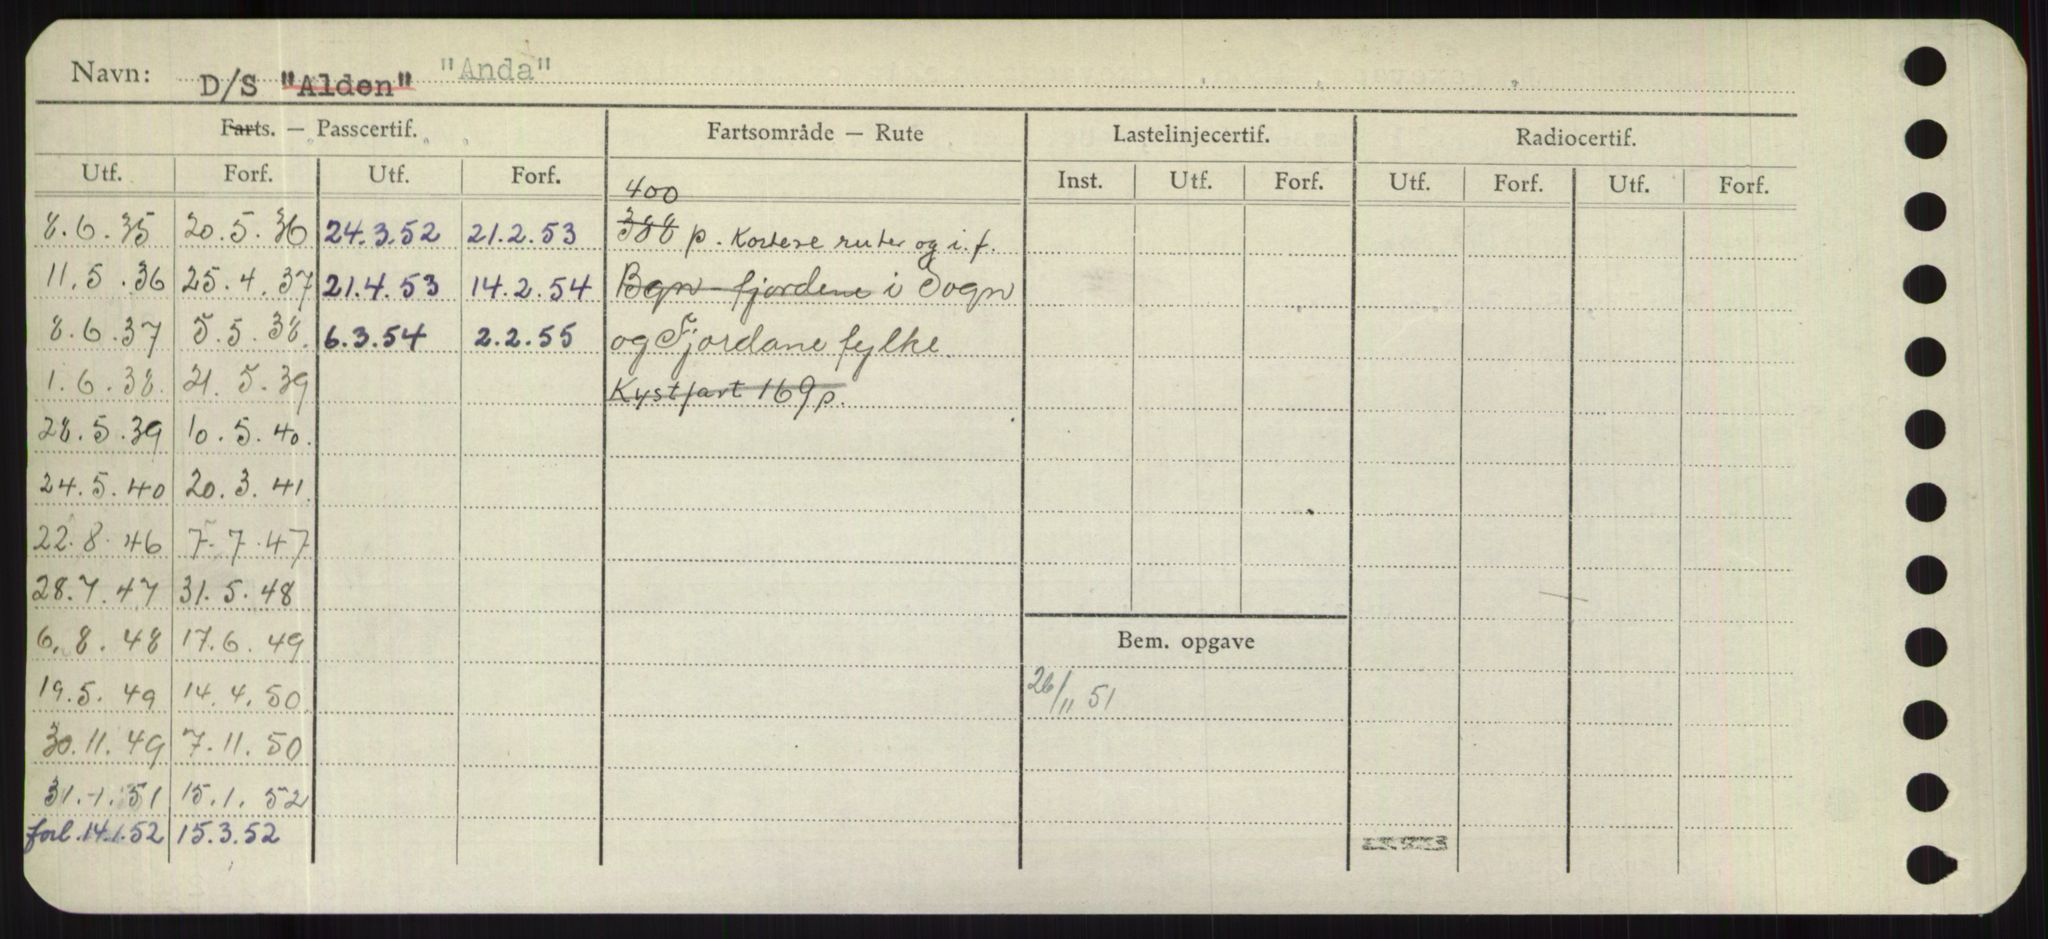 Navn: D/S "Alden" "Anda"
Farts. — Passcertif. Fartsområde — Rute Lastelinjecertif. Radiocertif.
Utf. Forf. Utf. Forf. Inst. Utf. Forf. Utf. Forf. Utf. Forf.
400
8.6.35 20.5.36 24.3.52 21.2.53 388 p. Kortere ruter og i.f.
11.5.36 25.4.37 21.4.53 14.2.54 Bgn-fjordene i Sogn
8.6.37 5.5.38. 6.3.54 2.2.55 og Fjordane fylke.
1.6.38. 21.5.39 Kystfart 169 p.
28.5.39 10.5.40.
24.5.40 20.3.41.
22.8.46 7.7.47
28.7.47 31.5.48
6.8.48 17.6.49
Bem. opgave
19.5.49 14.4.50 26/11 51
30.11.49 7.11.50
31.1.51 15.1.52
forl. 14.1.52 15.3.52